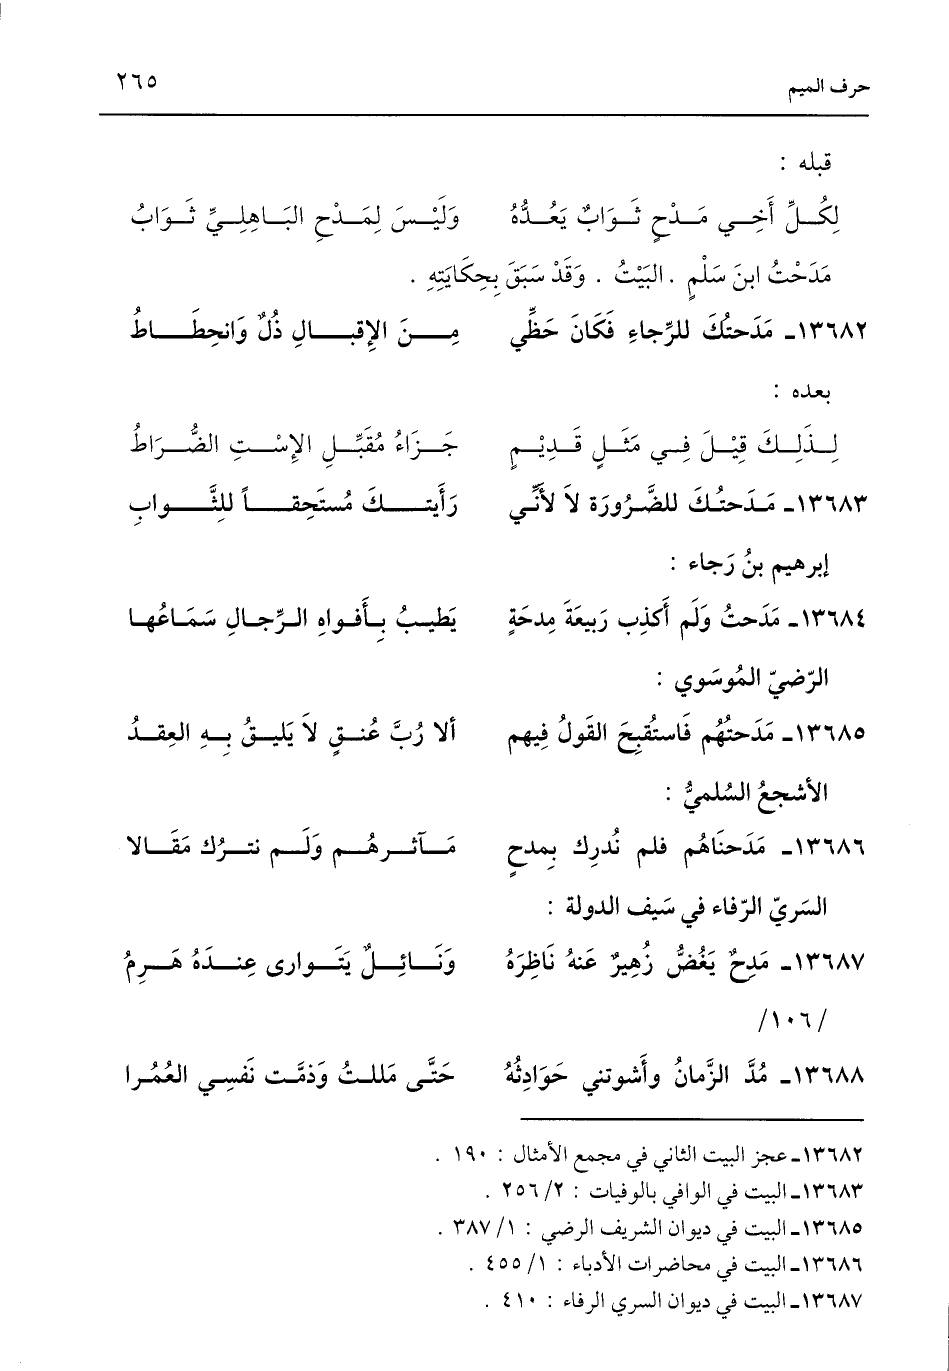 حرف الميم ٢٦٥
قبله :
لِكُلِّ أَخِي مَدْحٍ ثَوَابٌ يَعُدُّهُ وَلَيْسَ لِمَدْحِ البَاهِلِيِّ ثَوَابُ
مَدَحْتُ ابنَ سَلْمٍ . البَيْتُ . وَقَدْ سَبَقَ بِحِكَايَتِهِ .
١٣٦٨٢ـ مَدَحتُكَ للرِّجاءِ فَكَانَ حَظِّي مِنَ الإِقبَالِ ذُلٌ وَانحِطَاطُ
بعده :
لِذَلِكَ قِيْلَ فِي مَثَلٍ قَدِيْمٍ جَزَاءُ مُقَبِّلِ الإِسْتِ الضُّرَاطُ
١٣٦٨٣ـ مَدَحتُكَ للضَّرُورَة لاَ لأنّي رَأَيتكَ مُستَحِقاً للثَّوابِ
إبرهيم بنُ رَجاء :
١٣٦٨٤ـ مَدَحتُ وَلَم أَكذِب رَبيعَةَ مِدحَةٍ يَطيبُ بِأَفواهِ الرِّجالِ سَمَاعُها
الرّضيّ المُوسَوي :
١٣٦٨٥ـ مَدَحتُهُم فَاستُقبِحَ القَولُ فِيهم ألا رُبَّ عُنقٍ لاَ يَليقُ بِهِ العِقدُ
الأشجعُ السُلميُّ :
١٣٦٨٦ـ مَدَحنَاهُم فلم نُدرِك بِمدحٍ مَآثرهُم وَلَم نترُك مَقَالا
السَريّ الرّفاء في سَيف الدولة :
١٣٦٨٧ـ مَدِحٌ يَغُضُّ زُهيرٌ عَنهُ نَاظِرَهُ وَنَائِلٌ يَتَوارى عِندَهُ هَرِمُ
/١٠٦/
١٣٦٨٨ـ مُدَّ الزَّمانُ وأَشوتني حَوَادِثُهُ حَتَّى مَللتُ وَذمَّت نَفسِي العُمُرا
١٣٦٨٢ـ عجز البيت الثاني في مجمع الأمثال : ١٩٠ .
١٣٦٨٣ـ البيت في الوافي بالوفيات : ٢/ ٢٥٦ .
١٣٦٨٥ـ البيت في ديوان الشريف الرضي : ١/ ٣٨٧ .
١٣٦٨٦ـ البيت في محاضرات الأدباء : ١/ ٤٥٥ .
١٣٦٨٧ـ البيت في ديوان السري الرفاء : ٤١٠ .